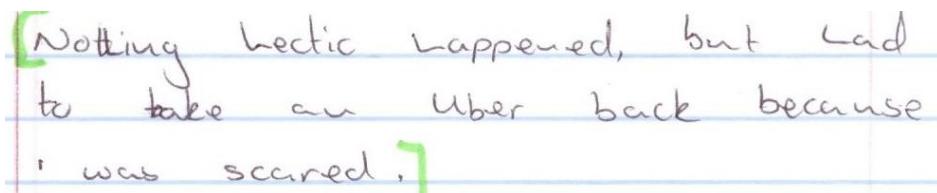 [Nothing hectic happened, but had
to take an Uber back because
i was scared.]